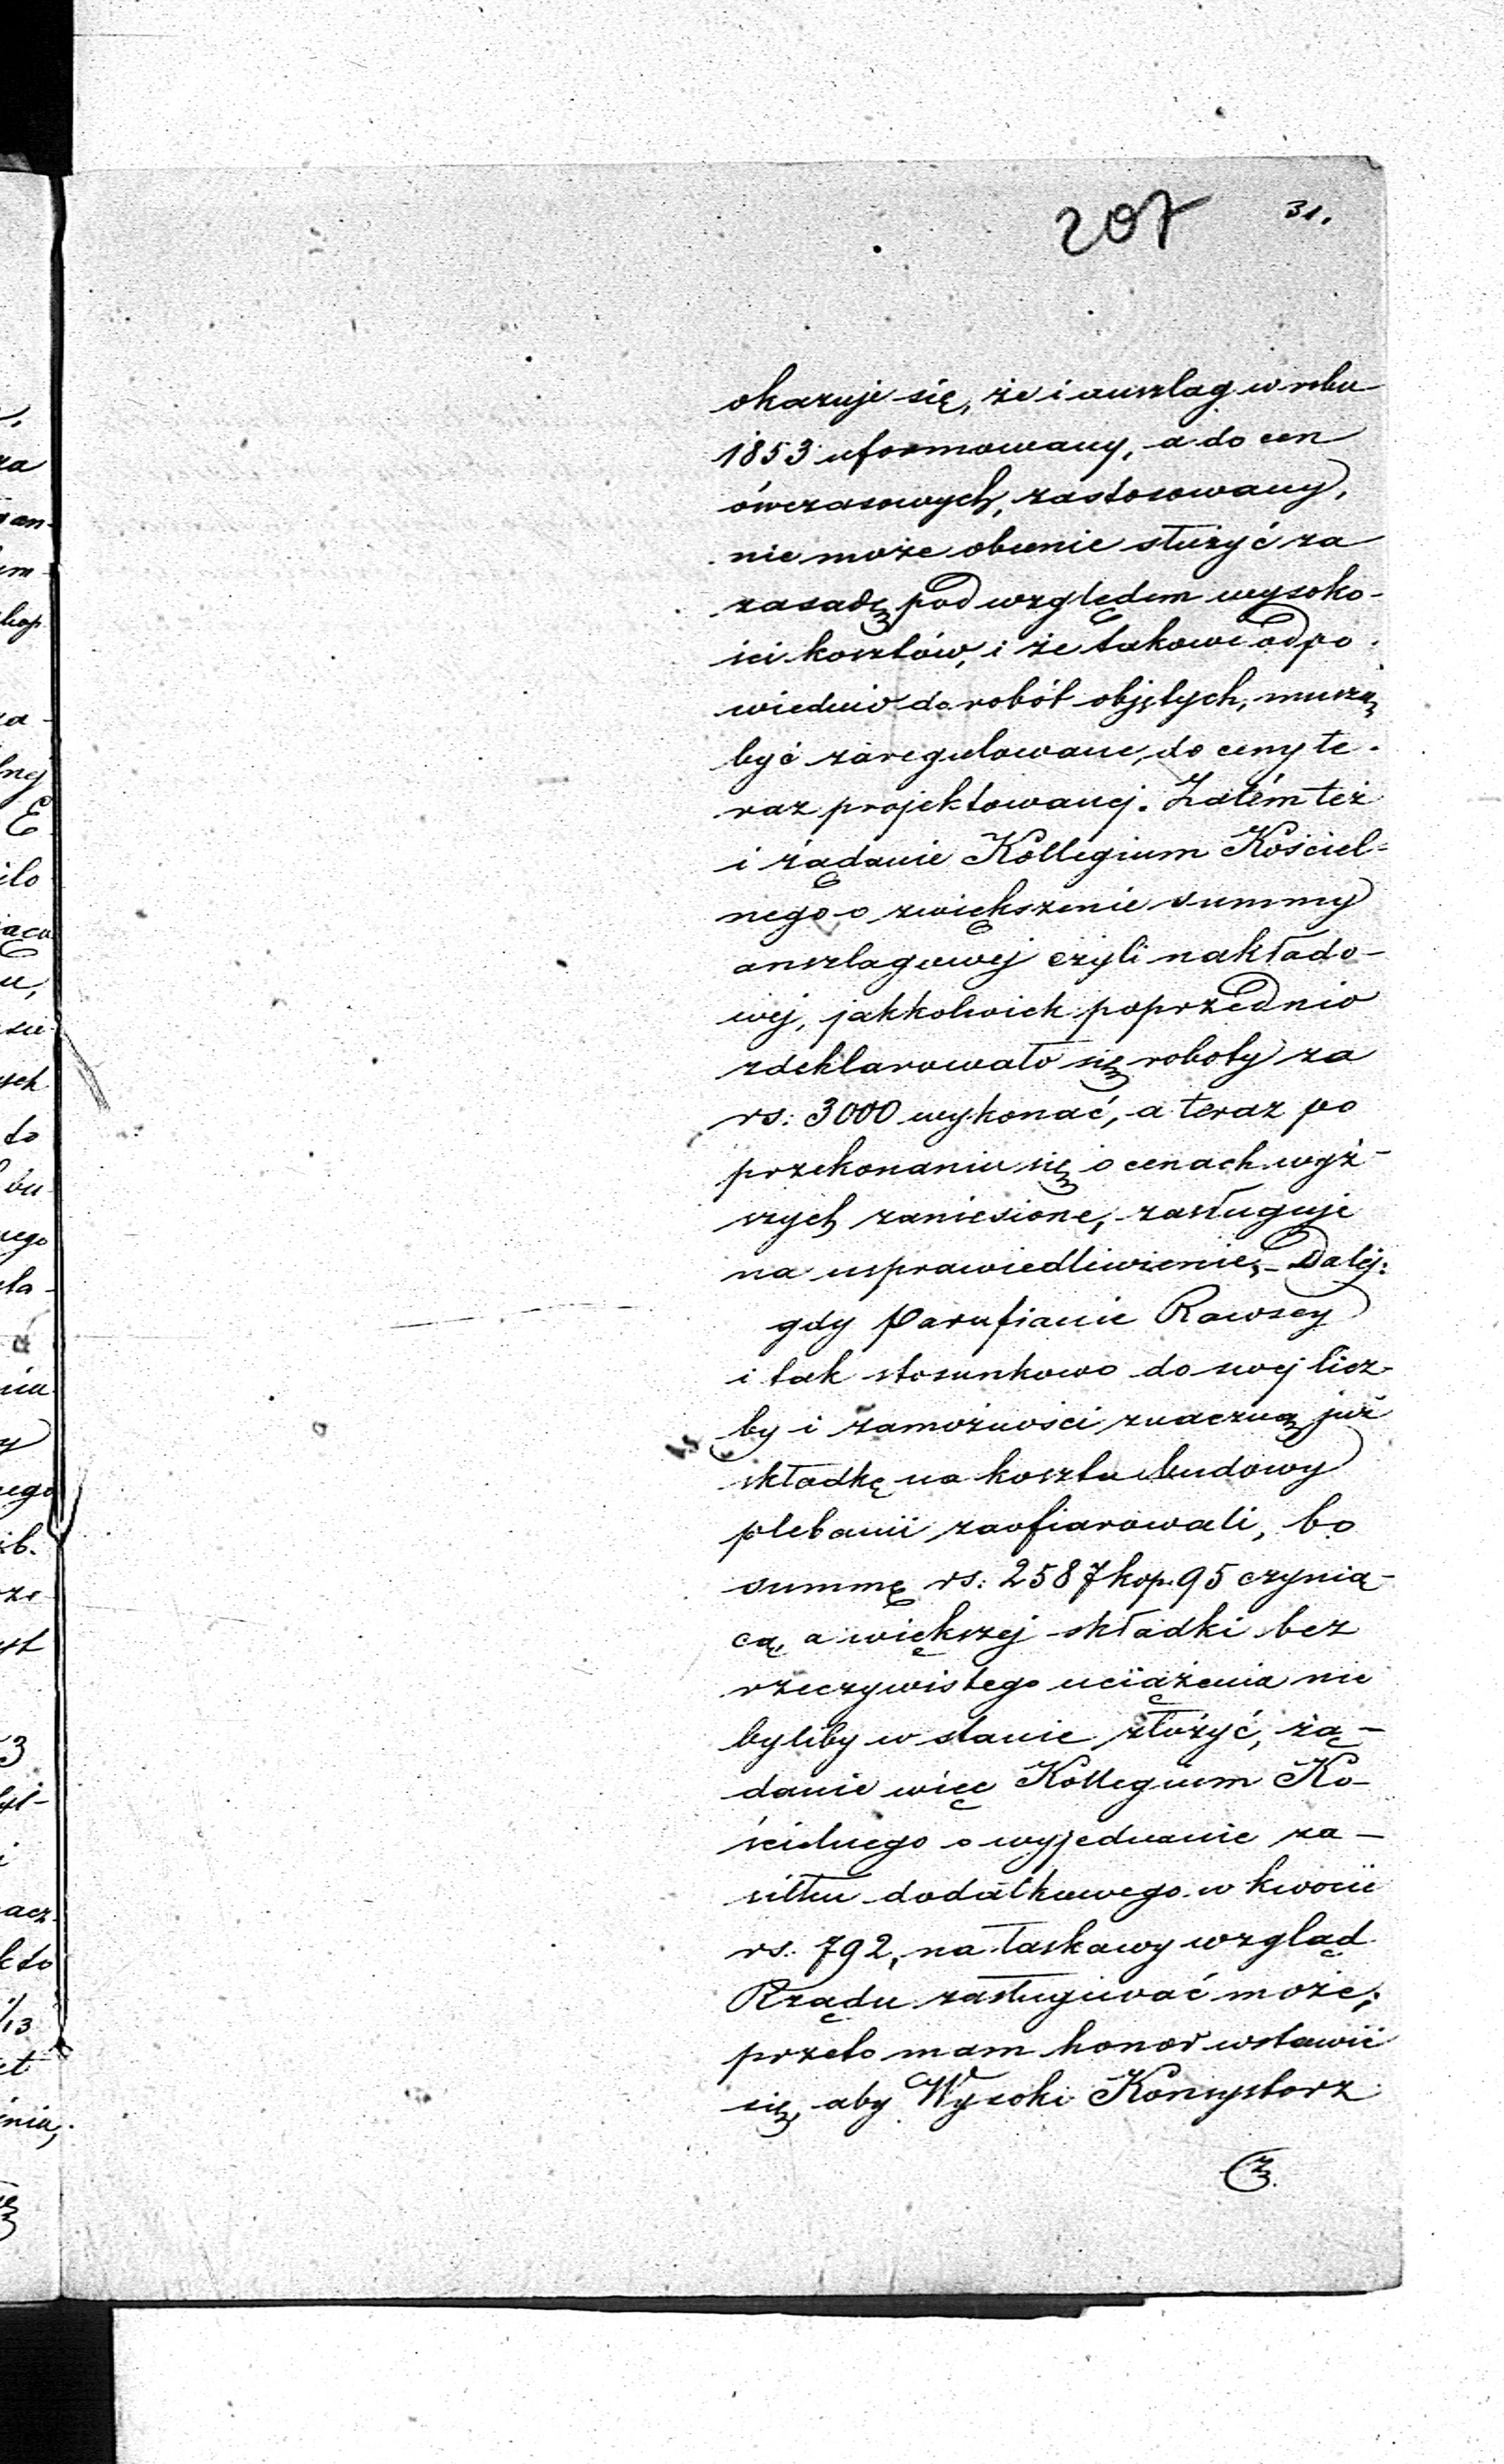 207 31.
okazuje się, że i anszlag w roku
1853 uformowany, a do cen
ówczasowych, zastosowany,
nie może obecnie służyć za
zasadę pod względem wysoko-
ści kosztów, i że takowe odpo-
wiednio do robót objętych, muszą
być zaregulowane, do ceny te-
raz projektowanej. Zatém też
i żądanie Kollegium Kościel-
nego o zwiększenie summy
anszlagowej czyli nakłado-
wej, jakkolwiek poprzednio
zdeklarowało się roboty za
rs: 3000 wykonać, a teraz po
przekonaniu się o cenach wyż-
szych zaniesione, zasługuje
na usprawiedliwienie, – Daléj:
gdy Parafianie Rawscy
i tak stosunkowo do swej licz-
by i zamożności znaczną już
składkę na koszta budowy
plebanii zaofiarowali, bo
summę rs: 2587 kop. 95 czynią-
cą, a większej składki bez
rzeczywistego uciążenia nie
byliby w stanie złożyć, żą-
danie więc Kollegium Ko-
ścielnego o wyjednanie za-
siłku dodatkowego w kwocie
rs. 792, na łaskawy wzgląd
Rządu zasługiwać może;
przeto mam honor wstawić
się, aby Wysoki Konsystorz